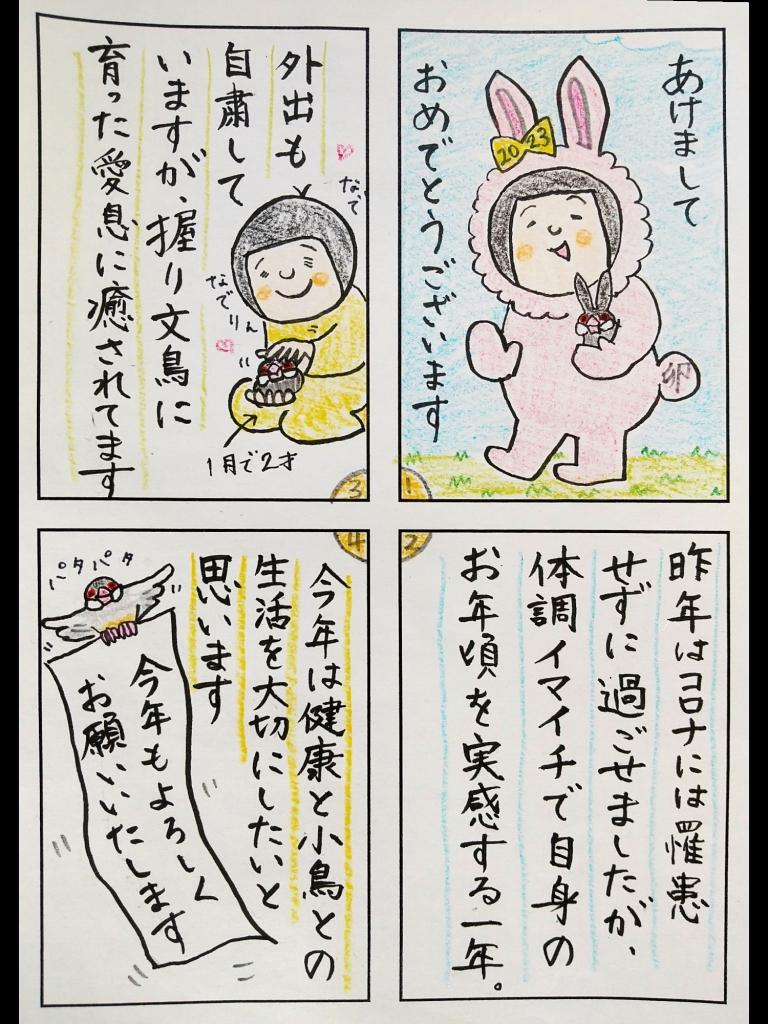 あけまして
おめでとうございます
2023
卯
1
2
昨年はコロナには罹患
せずに過ごせましたが、
体調イマイチで自身の
お年頃を実感する一年。
外出も
自粛して
いますが、握り文鳥に
育った愛息に癒されてます
なで
なでりん
1月で2才
3
4
今年は健康と小鳥との
生活を大切にしたいと
思います
パタパタ
今年もよろしく
お願いいたします